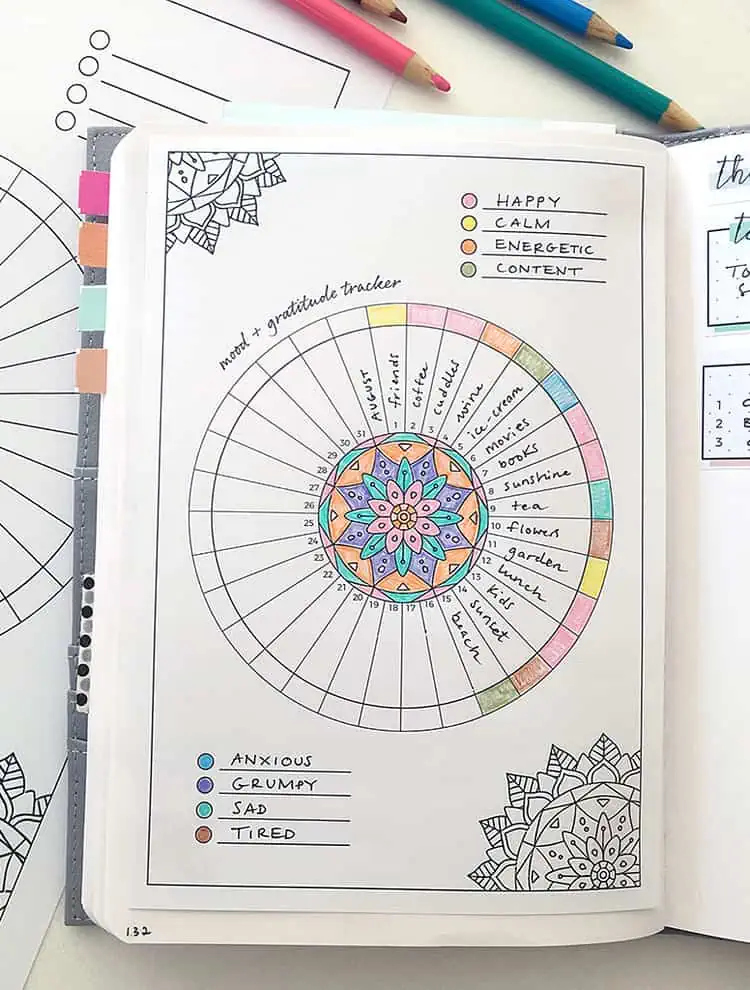 HAPPY
CALM
ENERGETIC
CONTENT
mood + gratitude tracker
AUGUST
friends
coffee
cuddles
wine
ice-cream
movies
books
sunshine
tea
flowers
garden
lunch
kids
sunset
beach
1
2
3
4
5
6
7
8
9
10
11
12
13
14
15
16
17
18
19
20
21
22
23
24
25
26
27
28
29
30
31
ANXIOUS
GRUMPY
SAD
TIRED
132
th
TO
S
1
2
3